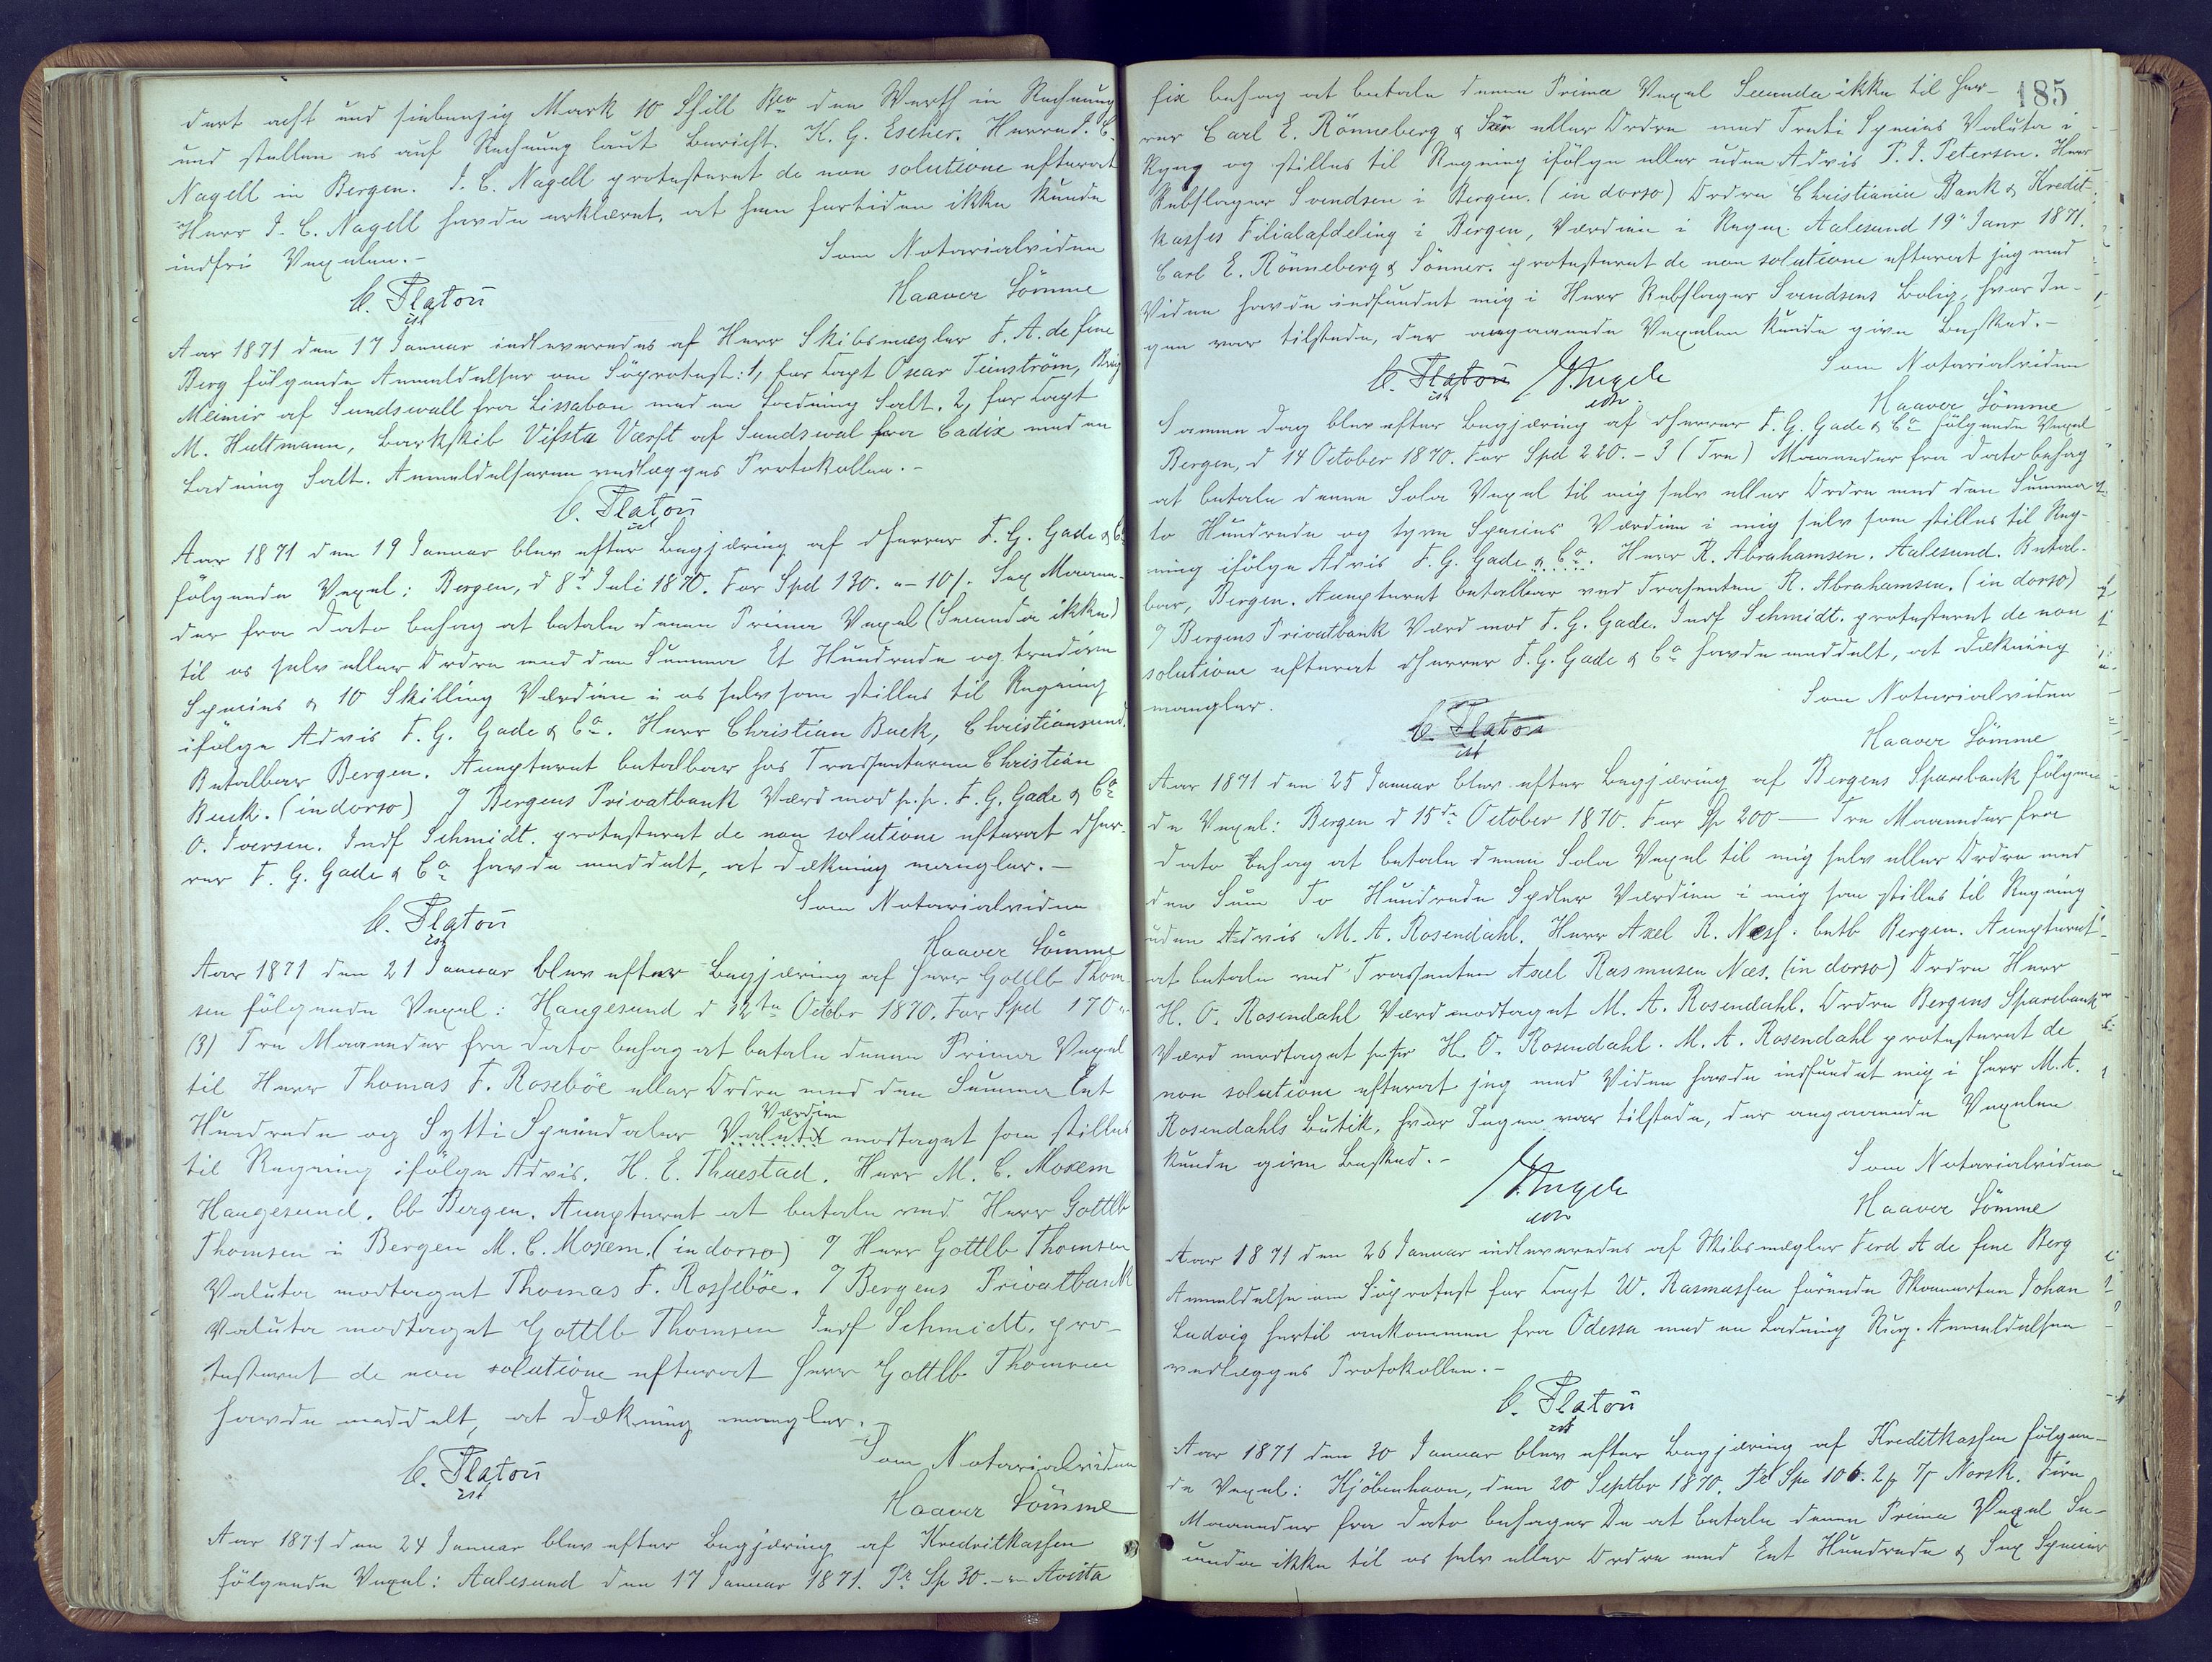 dert acht und siebenzig Mark 10 Shill Bco den Werth in Rechnung
und stellen es auf Rechnung laut Bericht. K. G. Escher. Herrn J. C.
Nagell in Bergen. J. C. Nagell protesteret de non solutione efterat
Herr J. C. Nagell havde erklæret, at han fortiden ikke kunde
indfri Vexelen.-
Som Notarialvidne
C. Platou
Haaver Sömme
cst
Aar 1871 den 17 Januar indleveredes af Herr Skibsmægler F. A. de fine
Berg fölgende Anmeldelser om Söprotest: 1, for Capt Oscar Timström, Brig
Meimer af Sundswall fra Lissabon med en Ladning Salt. 2, for Capt
M. Hultmann, Barkskib Vifsta Værft af Sundswal fra Cadix med en
Ladning Salt. Anmeldelserne vedlægges Protokollen.-
C. Platou
cst
Aar 1871 den 19 Januar blev efter Begjæring af Dherrer F. G. Gade & Co
fölgende Vexel: Bergen, d 8d Juli 1870. For Spd 130. „- 10/. Sex Maane-
der fra Dato behag at betale denne Prima Vexel (Secunda ikke)
til os selv eller Ordre med den Summa Et Hundrede og tredive
Species & 10 Skilling Værdien i os selv som stilles til Regning
ifölge Advis F. G. Gade & Co. Herr Christian Buck, Christiansund.
Betalbar Bergen. Accepteret betalbar hos Trassenterne Christian
Buck. (in dorso) 7 Bergens Privatbank Værd mod p.p. F. G. Gade & Co
O. Iversen. Indf Schmidt. protesteret de non solutione efterat Dher-
rer F. G. Gade & Co havde meddelt, at Dækning mangler.-
Som Notarialvidne
C. Platou
cst
Haaver Sömme
Aar 1871 den 21 Januar blev efter Begjæring af Herr Gottlb Thom-
sen fölgende Vexel: Haugesund d 12te Octobr 1870. For Spd 170 „
(3) Tre Maaneder fra Dato behag at betale denne Prima Vexel
til Herr Thomas F. Roseböe eller Ordre med den Summa Eet
Værdien
Hundrede og Sytti Speciedaler Valuta modtaget som stilles
til Regning ifölge Advis. H. E. Thuestad. Herr M. C. Moxem
Haugesund. bb Bergen. Accepteret at betale ved Herr Gottlb
Thomsen i Bergen M. C. Moxem. (in dorso) 7 Herr Gottlb Thomsen
Valuta modtaget Thomas F. Rosseböe. 7 Bergens Privatbank
Valuta modtaget Gottlb Thomsen Indf Schmidt. pro-
testeret de non solutione efterat Herr Gottlb Thomsen
havde meddelt, at Dækning mangler.-
Som Notarialvidne
C. Platou
cst
Haaver Sömme
Aar 1871 den 24 Januar blev efter Begjæring af Kreditkassen
fölgende Vexel: Aalesund den 17 Januar 1871. Pr Sp 30. - „ - Avista
185
fix behag at betale denne Prima Vexel Secunda ikke til Her-
rer Carl E. Rönneberg & Sön eller Ordre med Treti Species Valuta i
Regng og stilles til Regning ifölge eller uden Advis P. J. Petersen. Herr
Rebslager Svendsen i Bergen. (in dorso) Ordre Christiania Bank & Kredit-
kasses Filialafdeling i Bergen, Værdien i Regng. Aalesund 19 Janr 1871.
Carl E. Rönneberg & Sönner. protesteret de non solutione efterat jeg med
Vidne havde indfundet mig i Herr Rebslager Svendsens Bolig, hvor In-
gen var tilstede, der angaaende Vexelen kunde give Besked.-
Som Notarialvidne
C. Platou
cst
Haaver Sömme
Samme Dag blev efter Begjæring af Dherrer F. G. Gade & Co fölgende Vexel
Bergen, d 14 October 1870. For Spd 220. - 3 (Tre) Maaneder fra Dato behag
at betale denne Sola Vexel til mig selv eller Ordre med den Summa
to Hundrede og tyve Species Værdien i mig selv som stilles til Reg-
ning ifölge Advis F. G. Gade & Co. Herr R. Abrahamsen. Aalesund. Betal-
bar, Bergen. Accepteret betalbar ved Trasenten R. Abrahamsen. (in dorso)
7 Bergens Privatbank Værd mod F. G. Gade. Indf Schmidt. protesteret de non
solutione efterat Dherrer F. G. Gade & Co havde meddelt, at Dækning
mangler.
Som Notarialvidne
C. Platou
cst
Haaver Sömme
Aar 1871 den 25 Januar blev efter Begjæring af Bergens Sparebank fölgen-
de Vexel: Bergen d 15de October 1870. For Sp 200 — Tre Maaneder fra
Dato behag at betale denne Sola Vexel til mig selv eller Ordre med
den Sum To Hundrede Spdler Værdien i mig som stilles til Regning
uden Advis M. A. Rosendahl. Herr Axel R. Næss. betb Bergen. Accepteret
at betale ved Trassenten Axel Rasmusen Næs. (in dorso) Ordre Herr
H. O. Rosendahl Værd modtaget M. A. Rosendahl. Ordre Bergens Sparebank
Værd modtaget H. O. Rosendahl. M. A. Rosendahl protesteret de
non solutione efterat jeg med Vidne havde indfundet mig i Herr M. A.
Rosendahls Butik, hvor Ingen var tilstede, der angaaende Vexelen
kunde give Besked.-
Som Notarialvidne
Haaver Sömme
Aar 1871 den 26 Januar indleveredes af Skibsmægler Ferd A de fine Berg
Anmeldelse om Söprotest for Capt W. Rasmussen förende Skonnerten Johan
Ludvig hertil ankommen fra Odessa med en Ladning Rug. Anmeldelsen
vedlægges Protokollen.-
C. Platou
cst
Aar 1871 den 30 Januar blev efter Begjæring af Kreditkassen fölgen-
de Vexel: Kjöbenhavn, den 20 Septbr 1870. Sp 106. 2 7 Norsk. Fire
Maaneder fra Dato behager De at betale denne Prima Vexel Se-
cunda ikke til os selv eller Ordre med Eet Hundrede & Sex Species